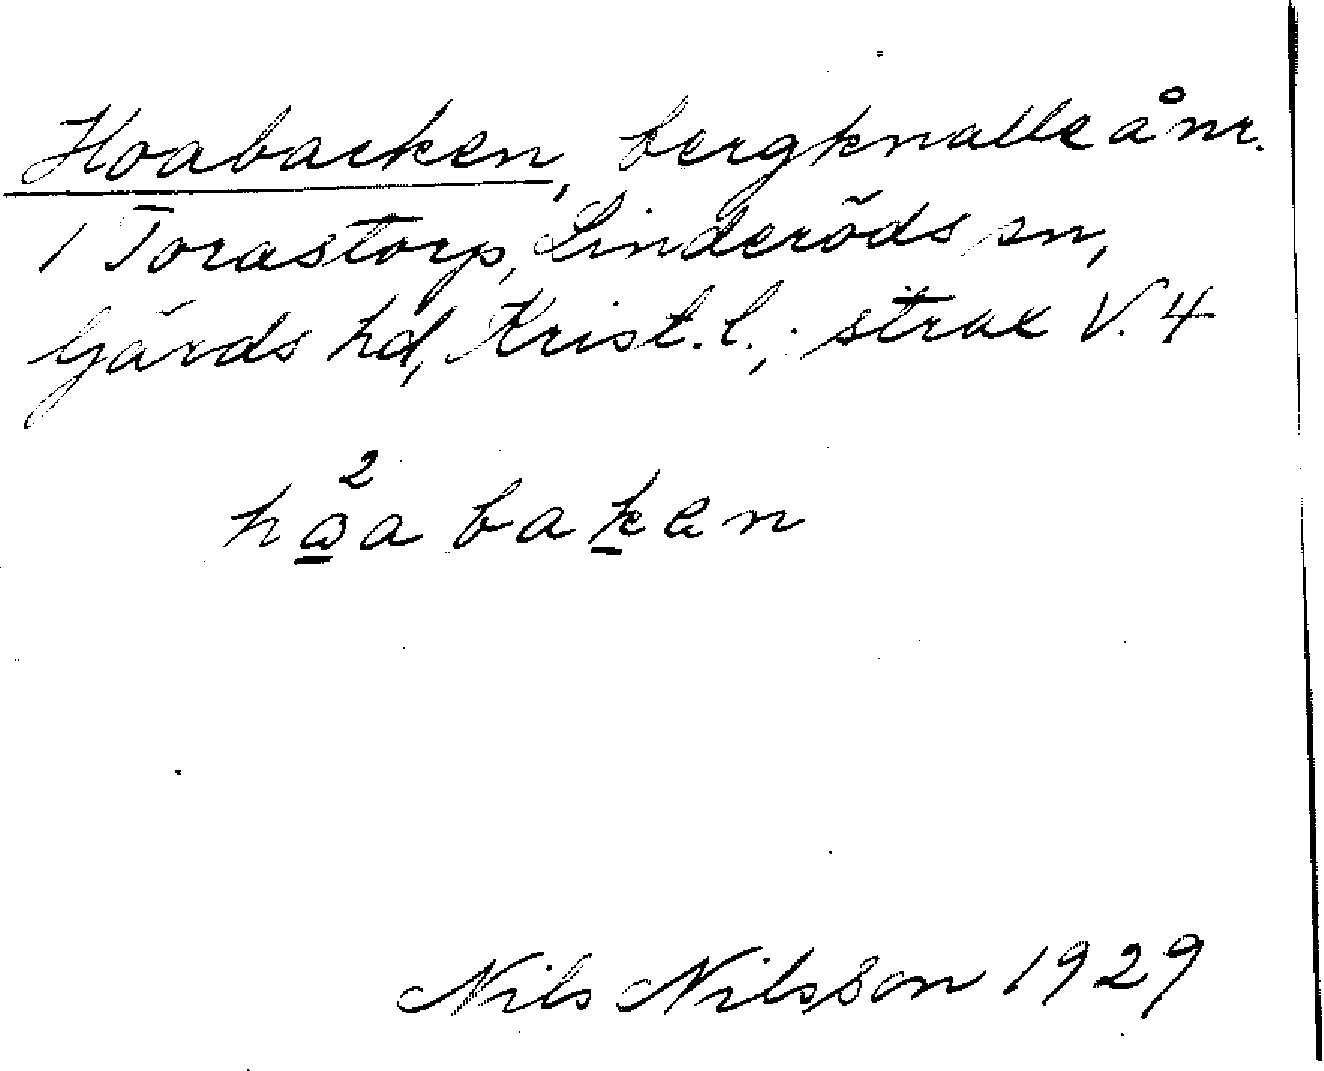 Hoabacken, bergknalle å nr.
1 Torastorp, Linderöds sn,
Gärds hd, Krist. l.; strax V. 4
2
håa baken
Nils Nilsson 1929